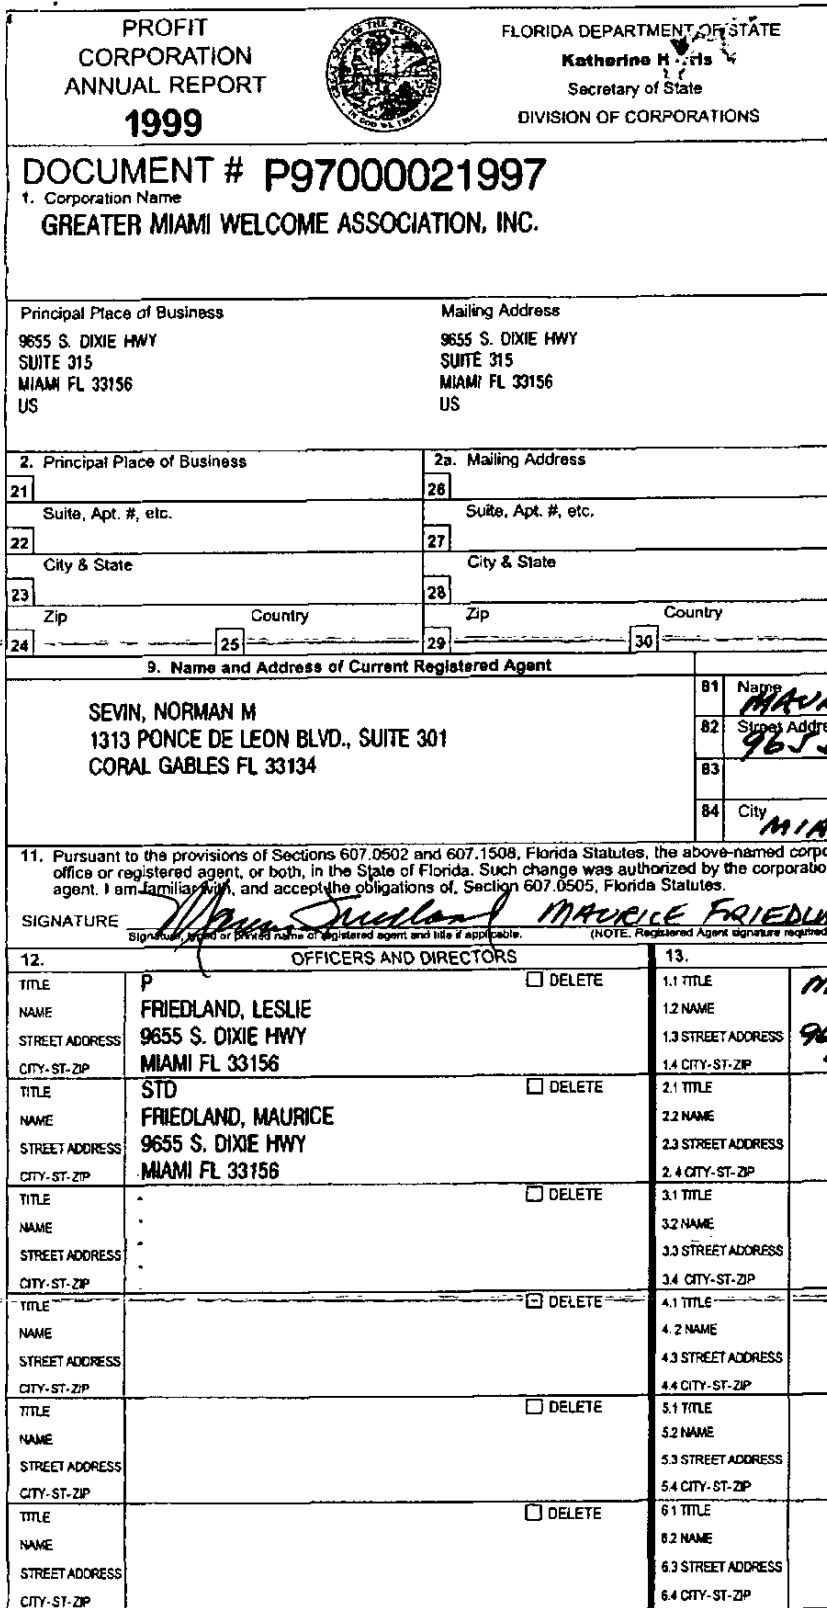 PROFIT
CORPORATION
ANNUAL REPORT
1999
FLORIDA DEPARTMENT OF STATE
Katherine
Secretary of State
DIVISION OF CORPORATIONS
DOCUMENT # P97000021997
1. Corporation Name
GREATER MIAMI WELCOME ASSOCIATION, INC.
Principal Place of Business
9655 S. DIXIE HWY
SUITE 315
MIAMI FL 33156
US
Mailing Address
9655 S. DIXIE HWY
SUITE 315
MIAMI FL 33156
US
2. Principal Place of Business
2a. Mailing Address
21
26
Suite, Apt. #, etc.
Suite, Apt. #, etc.
22
27
City & State
City & State
23
28
Zip
Country
Zip
Country
24
25
29
30
9. Name and Address of Current Registered Agent
SEVIN, NORMAN M
1313 PONCE DE LEON BLVD., SUITE 301
CORAL GABLES FL 33134
81 Name
82 Street Addre
83
84 City
11. Pursuant to the provisions of Sections 607.0502 and 607.1508, Florida Statutes, the above-named corpo
office or registered agent, or both, in the State of Florida. Such change was authorized by the corporatio
agent. I am familiar with, and accept the obligations of, Section 607.0505, Florida Statutes.
SIGNATURE Maurice Friedland MAURICE FRIEDL
Signature, typed or printed name of registered agent and title if applicable. (NOTE. Registered Agent signature required
12. OFFICERS AND DIRECTORS
13.
TITLE P DELETE
NAME FRIEDLAND, LESLIE
STREET ADDRESS 9655 S. DIXIE HWY
CITY-ST-ZIP MIAMI FL 33156
1.1 TITLE
1.2 NAME
1.3 STREET ADDRESS
1.4 CITY-ST-ZIP
TITLE STD DELETE
NAME FRIEDLAND, MAURICE
STREET ADDRESS 9655 S. DIXIE HWY
CITY-ST-ZIP MIAMI FL 33156
2.1 TITLE
2.2 NAME
2.3 STREET ADDRESS
2.4 CITY-ST-ZIP
TITLE DELETE
NAME
STREET ADDRESS
CITY-ST-ZIP
3.1 TITLE
3.2 NAME
3.3 STREET ADDRESS
3.4 CITY-ST-ZIP
TITLE DELETE
NAME
STREET ADDRESS
CITY-ST-ZIP
4.1 TITLE
4.2 NAME
4.3 STREET ADDRESS
4.4 CITY-ST-ZIP
TITLE DELETE
NAME
STREET ADDRESS
CITY-ST-ZIP
5.1 TITLE
5.2 NAME
5.3 STREET ADDRESS
5.4 CITY-ST-ZIP
TITLE DELETE
NAME
STREET ADDRESS
CITY-ST-ZIP
6.1 TITLE
6.2 NAME
6.3 STREET ADDRESS
6.4 CITY-ST-ZIP